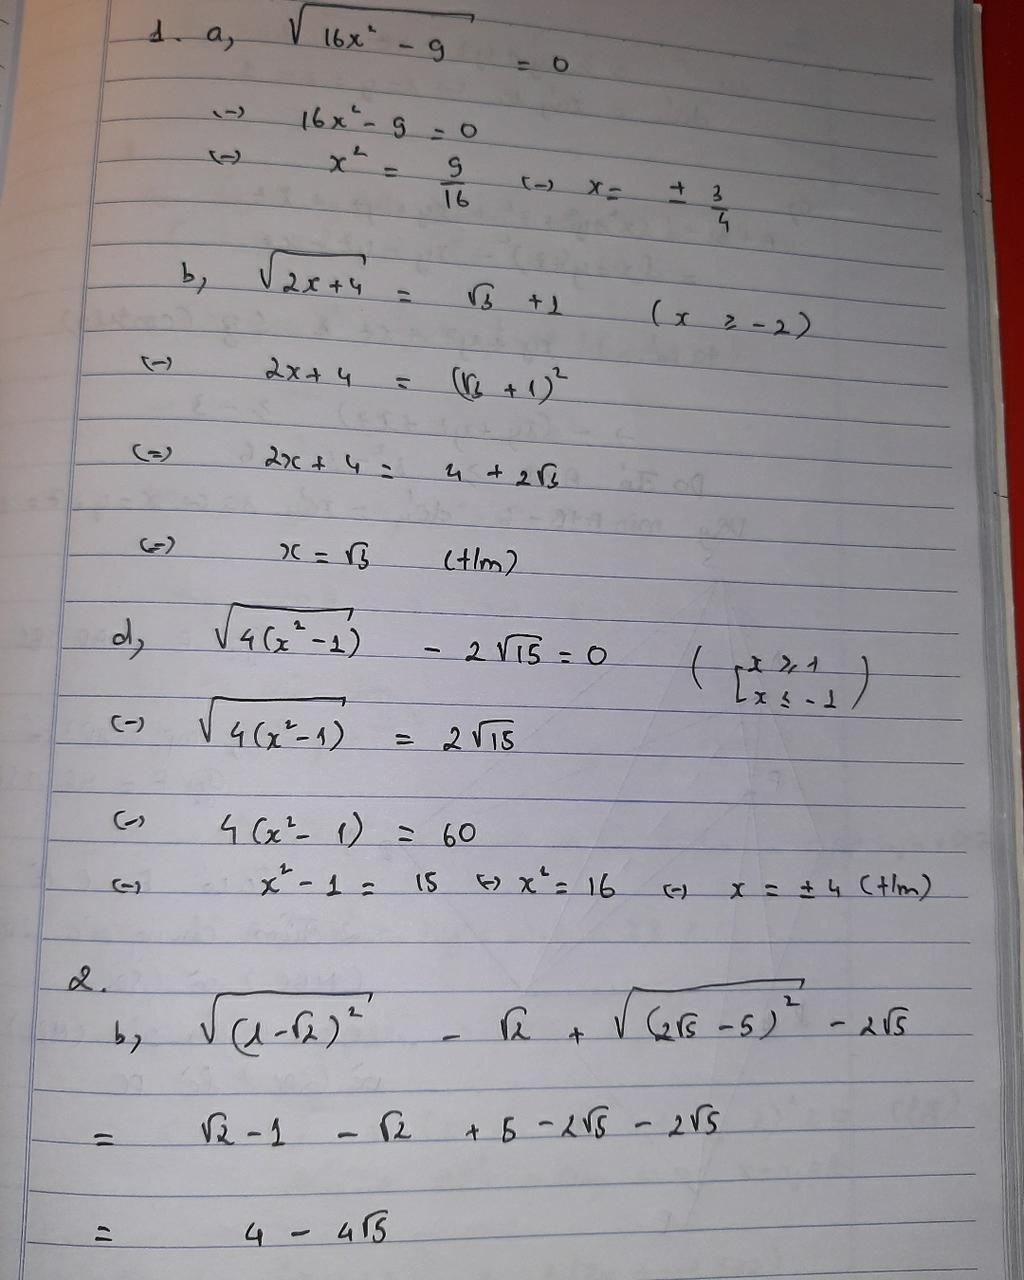 1. a, √(16x² - 9) = 0
<-> 16x² - 9 = 0
<-> x² = 9/16 <-> x = ± 3/4
b, √(2x+4) = √3 + 1 (x ≥ -2)
<-> 2x + 4 = (√3 + 1)²
<=> 2x + 4 = 4 + 2√3
<=> x = √3 (t/m)
d, √(4(x² - 1)) - 2√15 = 0 ([x ≥ 1
x ≤ -1)
<-> √(4(x² - 1)) = 2√15
<-> 4(x² - 1) = 60
<-> x² - 1 = 15 <-> x² = 16 <-> x = ± 4 (t/m)
2.
b, √((1-√2)²) - √2 + √((2√5 - 5)²) - 2√5
= √2 - 1 - √2 + 5 - 2√5 - 2√5
= 4 - 4√5